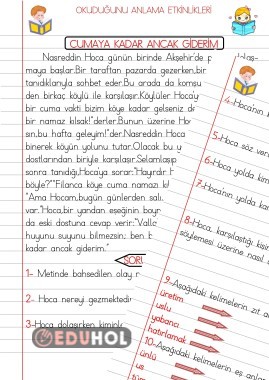 OKUDUĞUNU ANLAMA ETKİNLİKLERİ
CUMAYA KADAR ANCAK GİDERİM
Nasreddin Hoca günün birinde Akşehir'de
maya başlar.Bir taraftan pazarda gezerken,bir
tanıdıklarıyla sohbet eder.Bu arada da komşu
den birkaç köylü ile karşılaşır.Köylüler Hoca'y
bir cuma vakti bizim köye kadar gelseniz de
bir namaz kılsak!"derler.Bunun üzerine Ho
sın,bu hafta geleyim!"der.Nasreddin Hoca
binerek köyün yolunu tutar.Olacak bu y
dostlarından biriyle karşılaşır.Selamlaşıp
sonra tanıdığı,Hocaya sorar:"Hayırdır H
böyle?""Filanca köye cuma namazı kı
"Ama Hocam,bugün günlerden salı.
var."Hoca,bir yandan eşeğinin boyr
da eski dostuna cevap verir:"Valla
huyunu suyunu bilmezsin; ben b
kadar ancak giderim."
SOR
1- Metinde bahsedilen olay n
2- Hoca nereyi gezmektedir
3-Hoca dolaşırken kiminle
4-Hoca'nın k
5-Hoca söz ver
6-Hoca yolda kim
7-Hoca'nın yolda kar
8-Hoca, karşılaştığı kişi
söylemesi üzerine nasıl
9-Aşağıdaki kelimelerin zıt a
üretim
uslu
yabancı
hatırlamak
10-Aşağıdaki kelimelerin eş anla
ünlü
us
EDUHOL